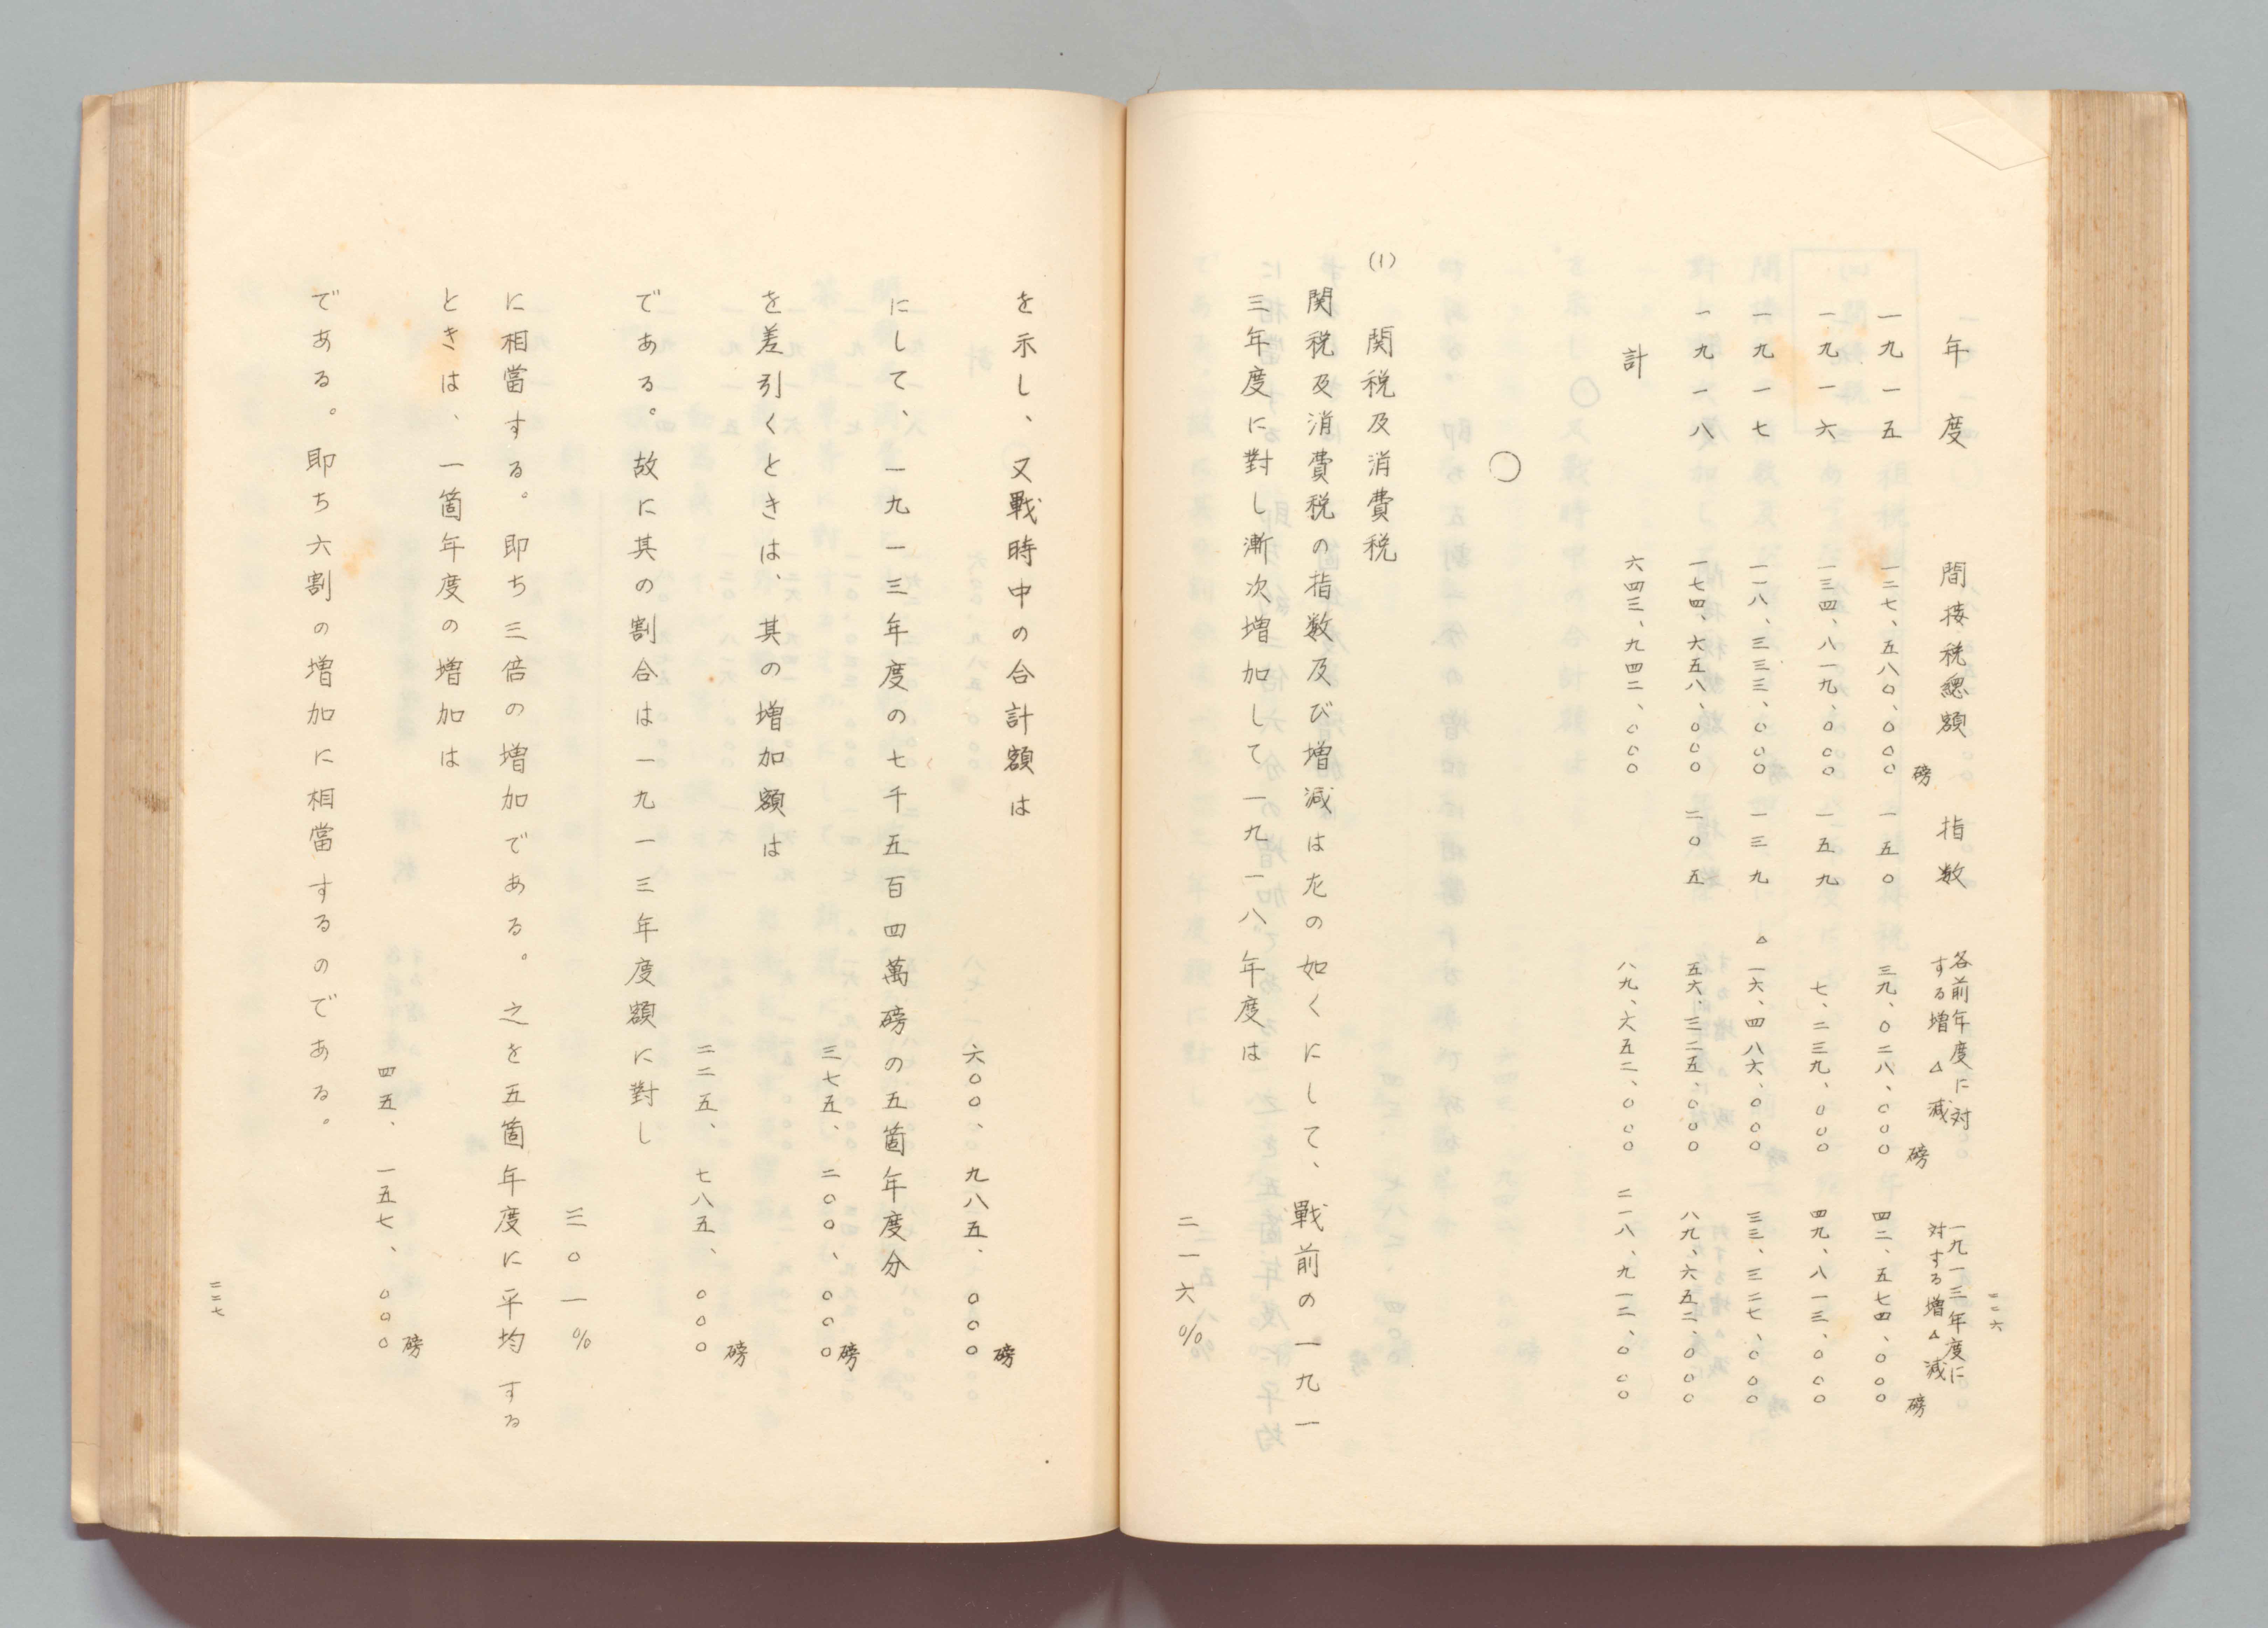 二二六
年度 間接税總額 指数 各前年度に対する増△減 一九一三年度に対する増△減
磅 磅 磅
一九一五 一二七、五八〇、〇〇〇 一五〇 三九、〇二八、〇〇〇 四二、五七四、〇〇〇
一九一六 一三四、八一九、〇〇〇 一五九 七、二三九、〇〇〇 四九、八一三、〇〇〇
一九一七 一一八、三三三、〇〇〇 一三九 △一六、四八六、〇〇〇 三三、三二七、〇〇〇
一九一八 一七四、六五八、〇〇〇 二〇五 五六、三二五、〇〇〇 八九、六五二、〇〇〇
計 六四三、九四二、〇〇〇 八九、六五二、〇〇〇 二一八、九一二、〇〇〇
〇
(1) 関税及消費税
関税及消費税の指数及び増減は左の如くにして、戰前の一九一
三年度に對し漸次増加して一九一八年度は
二一六%
を示し、又戰時中の合計額は
六〇〇、九八五、〇〇〇磅
にして、一九一三年度の七千五百四萬磅の五箇年度分
三七五、二〇〇、〇〇〇磅
を差引くときは、其の増加額は
二二五、七八五、〇〇〇磅
である。故に其の割合は一九一三年度額に對し
三〇一%
に相當する。即ち三倍の増加である。之を五箇年度に平均する
ときは、一箇年度の増加は
四五、一五七、〇〇〇磅
である。即ち六割の増加に相當するのである。
二二七